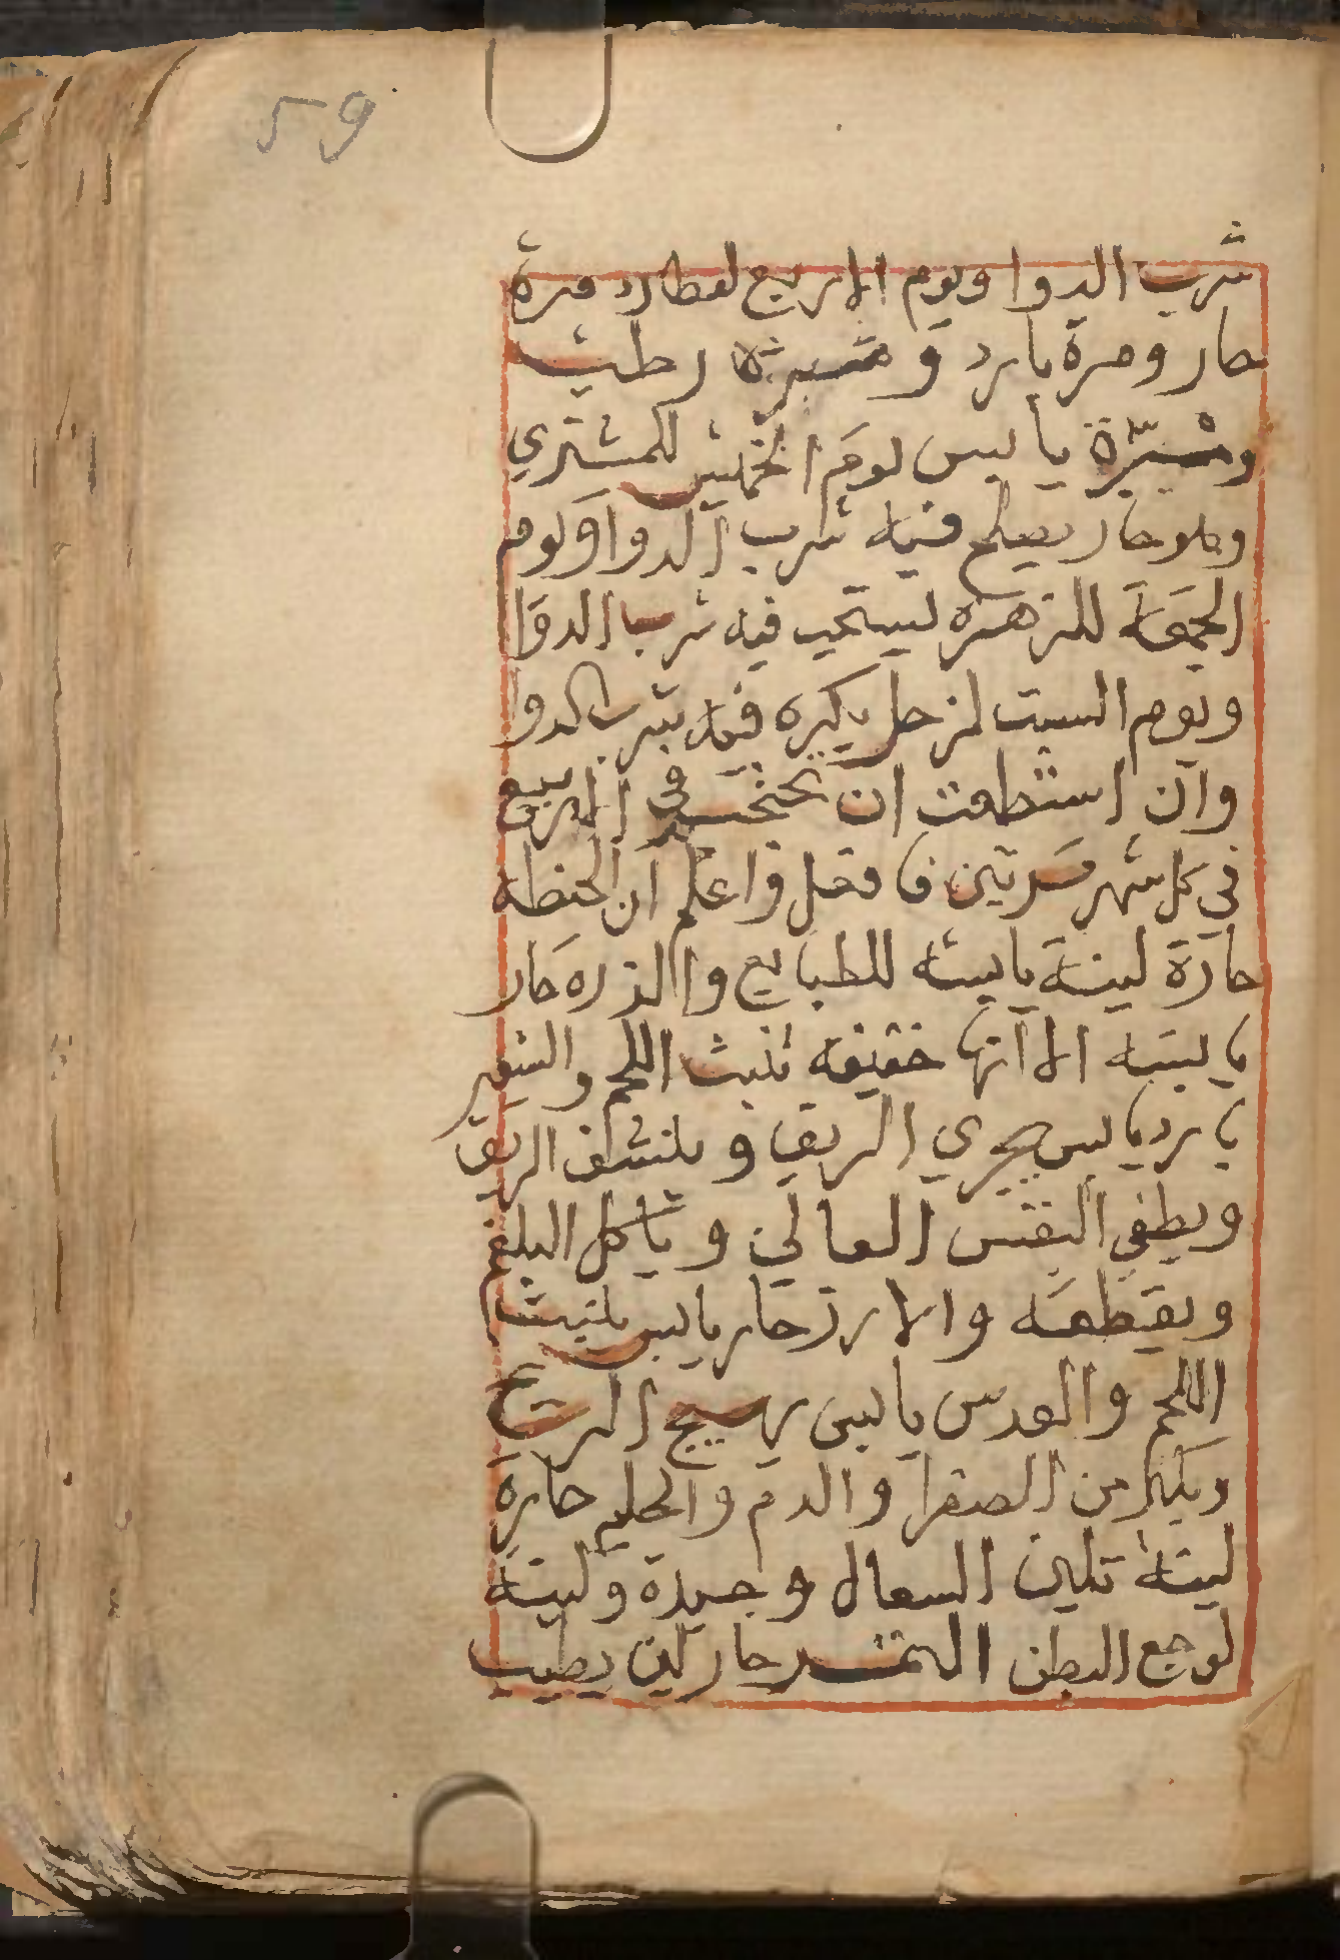 59
شرب الدوا ويوم الاربع لعطارد مرة
حار ومرة بارد ومرة رطب
ومرة يابس يوم الخميس للمشتري
وهو حار يصلح فيه شرب الدوا ويوم
الجمعة للزهره يستحب فيه شرب الدوا
ويوم السبت لزحل يكره فيه شرب الدوا
وان استطعت ان في الربيع
في كل شهر مرتين فافعل واعلم ان الحنطه
حارة لينة يابسه للطبايع والذره حار
يابسه الا انها خفيفه تنبت اللحم والشعير
بارد يابس يجري الريق وينشف الريق
ويطفي النفس العالي وياكل البلغم
ويقطعه والارز حار يابس ينبت
اللحم والعدس يابس يهيج الريح
ويكثر من الصفرا والدم والحلبه حارة
لينة تلين السعال وجيدة ولينه
لوجع البطن التمر حار لين يطيب